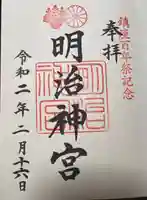 鎮座百年祭記念
奉拝
明治神宮
令和二年二月十六日